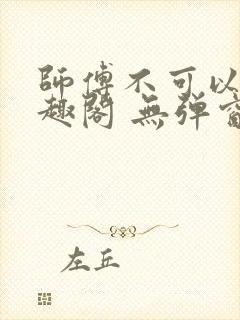 師傅不可以
趣閣 無彈窗
左丘